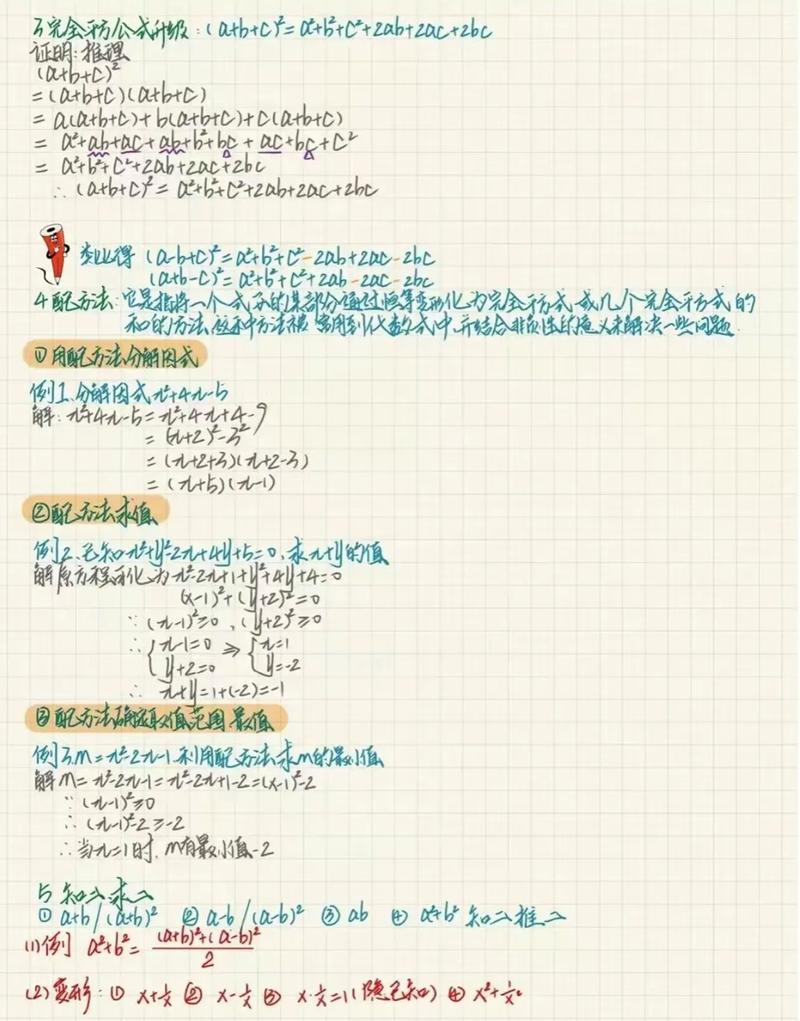 3 完全平方公式升级: (a+b+c)²=a²+b²+c²+2ab+2ac+2bc
证明:推理
(a+b+c)²
=(a+b+c)(a+b+c)
= a(a+b+c)+b(a+b+c)+c(a+b+c)
= a²+ab+ac+ab+b²+bc+ac+bc+c²
= a²+b²+c²+2ab+2ac+2bc
∴(a+b+c)²= a²+b²+c²+2ab+2ac+2bc
类比得 (a-b+c)²=a²+b²+c²-2ab+2ac-2bc
(a+b-c)²=a²+b²+c²+2ab-2ac-2bc
4 配方法:它是指将一个式子的某部分通过恒等变形化为完全平方式或几个完全平方式的
和的方法.这种方法被常用到代数式中,并结合非负性的意义来解决一些问题.
①用配方法分解因式
例1.分解因式x²+4x-5
解:x²+4x-5=x²+4x+4-9
=(x+2)²-3²
=(x+2+3)(x+2-3)
=(x+5)(x-1)
②配方法求值
例2.已知x²+y²-2x+4y+5=0,求x+y的值
解原方程可化为x²-2x+1+y²+4y+4=0
(x-1)²+(y+2)²=0
∵(x-1)²≥0,(y+2)²≥0
∴{x-1=0 ⇒ {x=1
y+2=0 y=-2
∴ x+y=1+(-2)=-1
③配方法确定取值范围 最值
例3.m=x²-2x-1.利用配方法求m的最小值
解m=x²-2x-1=x²-2x+1-2=(x-1)²-2
∵(x-1)²≥0
∴(x-1)²-2≥-2
∴当x=1时,m有最小值-2
5 知二求二
① a+b/(a+b)² ② a-b/(a-b)² ③ ab ④ a²+b² 知二推二
(1)例 a²+b²= (a+b)²+(a-b)²/2
(2)变形:① x+1/x ② x-1/x ③ x·1/x=1(隐已知) ④ x²+1/x²